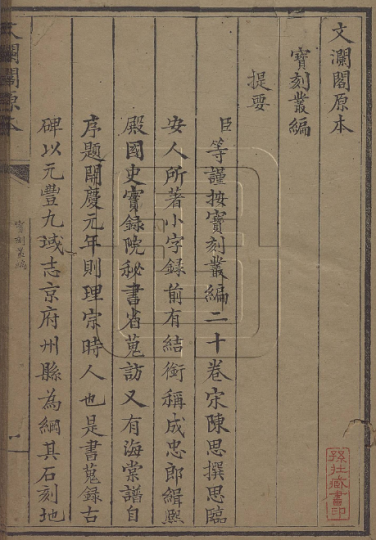 文瀾閣原本
寶刻叢編
提要
臣等謹按寶刻叢編二十卷宋陳思撰思臨
安人所著小字錄前有結銜稱成忠郎緝熙
殿國史實錄院秘書省蒐訪又有海棠譜自
序題開慶元年則理宗時人也是書蒐錄古
碑以元豐九域志京府州縣為綱其石刻地
文瀾閣原本
寶刻叢編
一